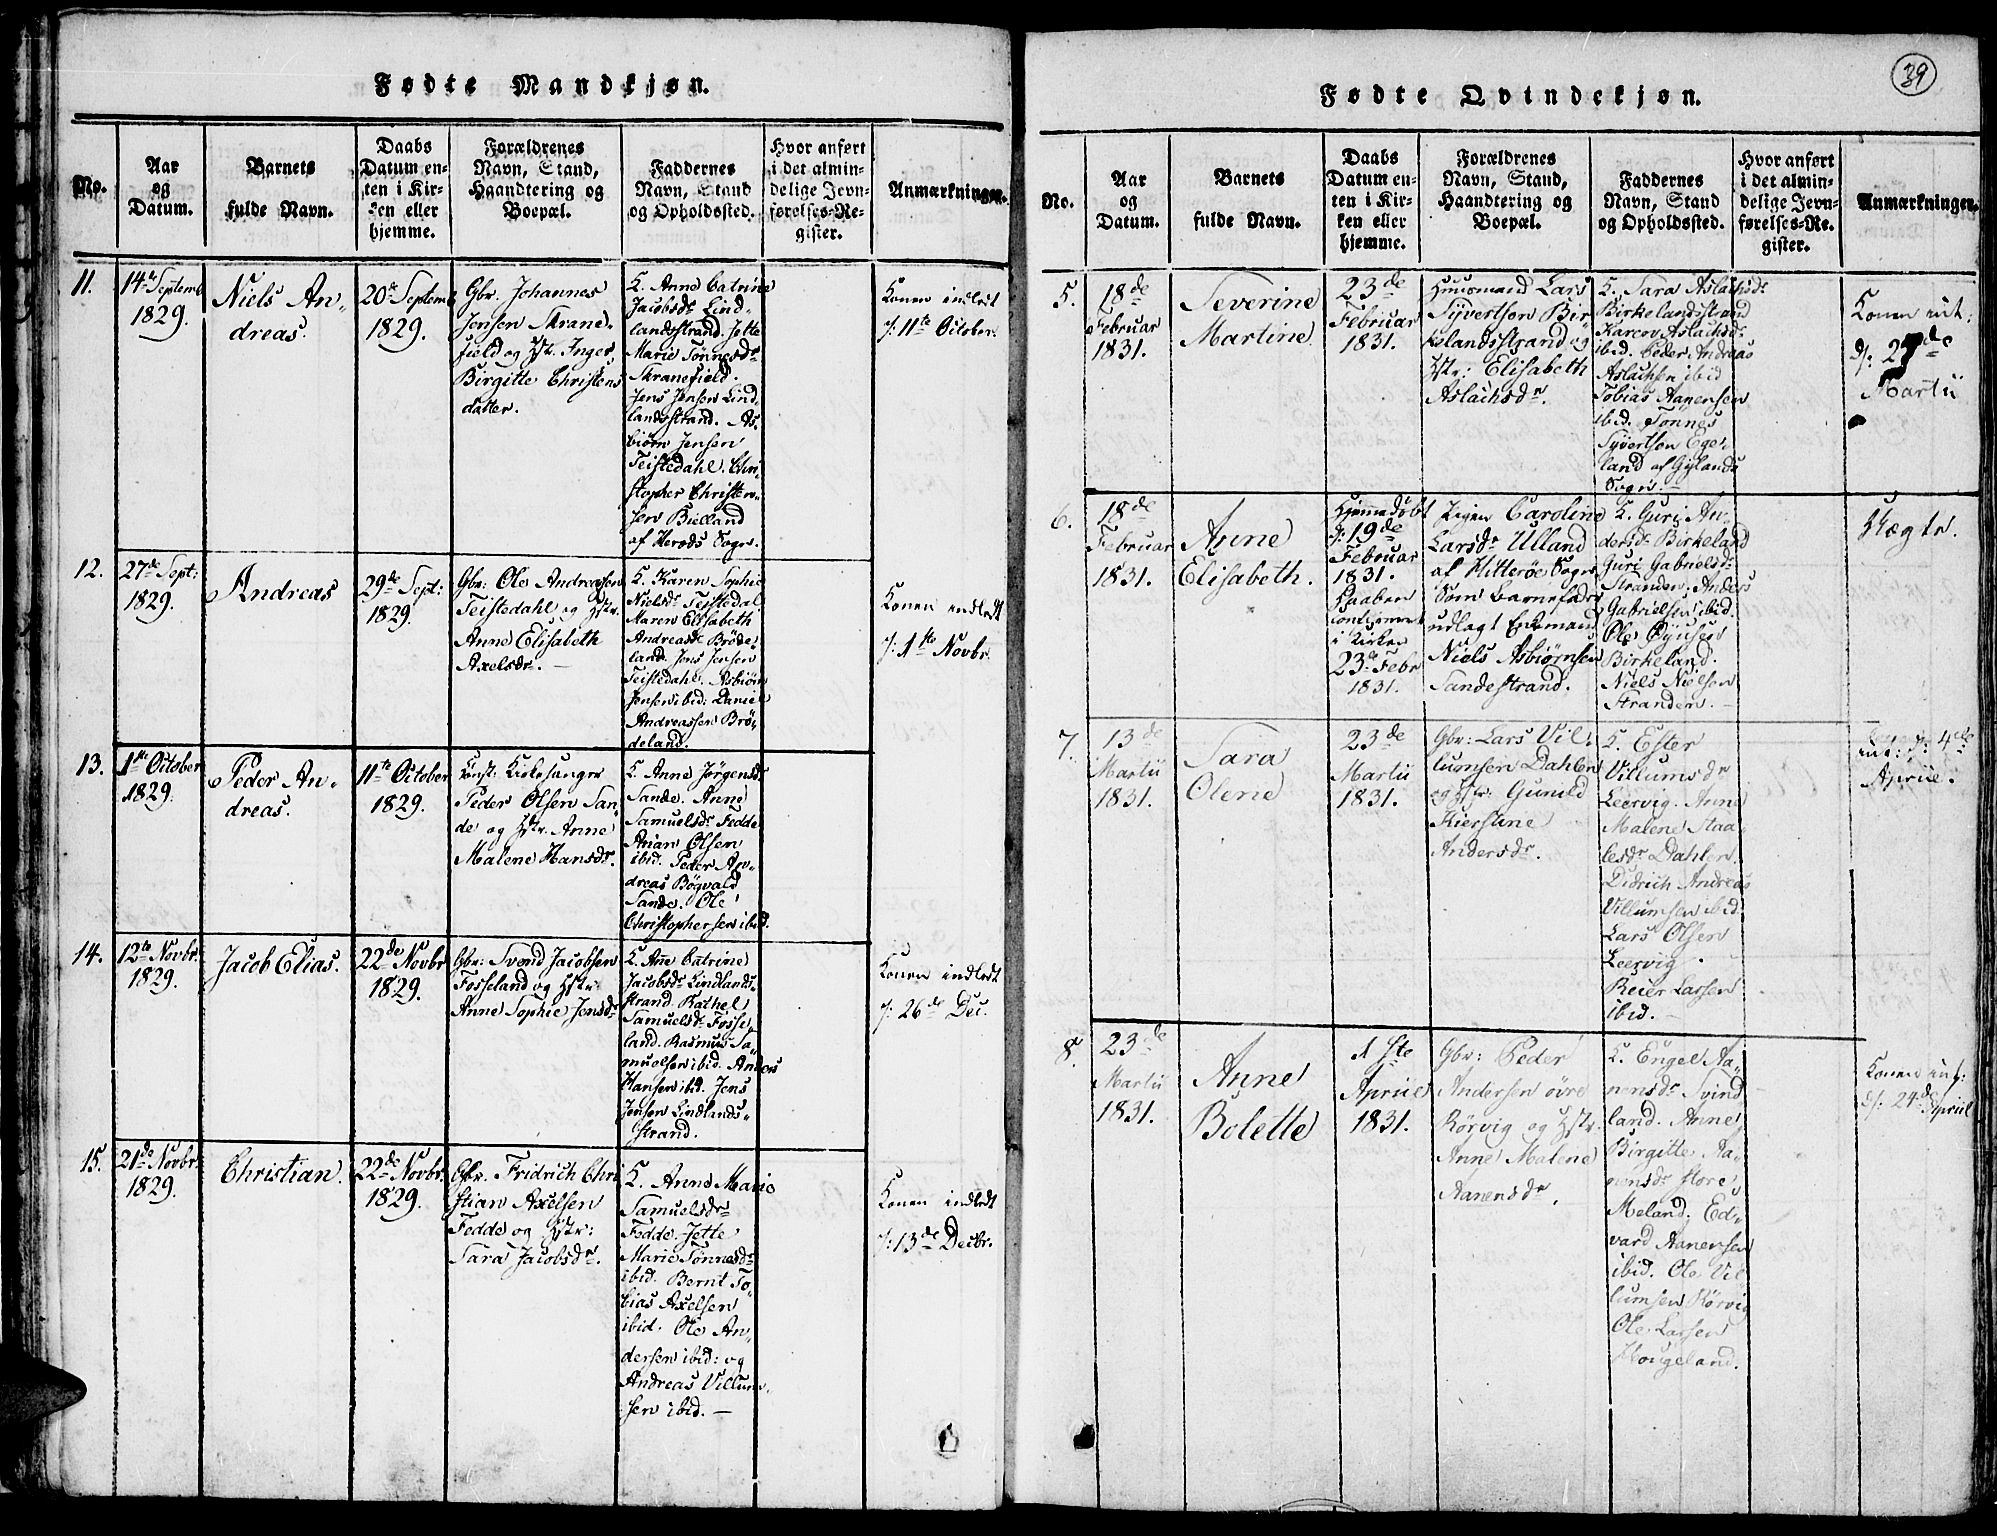 Fødte Mandkjøn.
No.
Aar
og
Datum.
Barnets
fulde Navn.
Daabs
Datum en-
ten i Kir-
ken eller
hjemme.
Forældrenes
Navn, Stand,
Haandtering og
Boepæl.
Faddernes
Navn, Stand
og Opholdssted.
Hvor anført
i det almin-
delige Jevn-
førelses-Re-
gister.
Anmærkninger.
11.
14de Septemb
1829.
Niels An-
dreas.
20de Septemb
1829.
Gbr. Johannes
Jensen Skrane-
field og Hstr. Inger
Birgitte Christens
datter.
K. Anne Catrine
Jacobsdr Lind-
landsstrand. Jette
Marie Tønnesdr
Skranefield.
Jens Jensen Lind-
landsstrand. As-
biørn Jensen
Teistedahl. Chri-
stopher Christen-
sen Bielland
af Herøds Sogn.
Konen indledt
d: 11te October.
12.
27de Sept:
1829.
Andreas
29de Sept:
1829.
Gbr: Ole Andreasen
Teistedahl og Hstr
Anne Elisabeth
Axelsdr. —
K. Karen Sophie
Nielsdr Teistedal.
Maren Elisabeth
Andreasdr Brøde-
land. Jens Jensen
Teistedahl. Asbiørn
Jensen ibid: Daniel
Andreassen Brø-
deland.
Konen indledt
d: 1ste Novbr.
13.
1ste October
1829.
Peder An-
dreas.
11te October
1829.
Const: Kirkesanger
Peder Olsen San-
de og Hstr. Anne
Malene Hansdr.
K. Anne Jørgensdr
Sande. Anne
Samuelsdr Fedde
Arian Olsen
ibid. Peder An-
dreas Bøgvald
Sande. Ole
Christophersen ibid.
14.
12te Novbr:
1829.
Jacob Elias.
22de Novbr
1829.
Gbr: Svend Jacobsen
Fosseland og Hstr:
Anne Sophie Jensdr
K. Ane Catrine
Jacobsdr Lindlands-
strand. Rathel
Samuelsdr Fosse-
land. Rasmus Sa-
muelsen ibid. Anders
Hansen ibid. Jens
Jensen Lindlands-
strand.
Konen indledt
d: 26de Dec.
15.
21de Novbr:
1829.
Christian.
22de Novbr.
1829.
Gbr. Fridrich Chri
stian Axelsen
Fedde og Hstr:
Sara Jacobsdr.
K. Anne Marie
Samuelsdr
Fedde. Jette
Marie Tønnesdr
ibid. Bernt To-
bias Axelsen
ibid. Ole An-
dersen ibid: og
Andreas Villum-
sen ibid. —
Konen indledt
d: 13de Decbr.
39
Fødte Qvindekjøn.
No.
Aar
og
Datum.
Barnets
fulde Navn.
Daabs
Datum en-
ten i Kir-
ken eller
hjemme.
Forældrenes
Navn, Stand,
Haandtering og
Boepæl.
Faddernes
Navn, Stand
og Opholdssted.
Hvor anført
i det almin-
delige Jevn-
førelses-Re-
gister.
Anmærkninger.
5.
18de
Februar
1831.
Severine
Martine
23de
Februar
1831.
Huusmand Lars
Syvertsen Bir-
kelandsstrand og
Hstr: Elisabeth
Aslachsdr.
K. Sara Aslachsdr
Birkelandsstrand
Karen Aslachsdr
ibid. Peder Andreas
Aslachsen ibid
Tobias Aanensen
ibid. Tønnes
Syvertsen Ege-
land af Gylands
Sogn. —
Konen int:
d:
Martii
6.
18de
Februar
1831.
Anne
Elisabeth.
Hjemmedøbt
d: 19de
Februar
1831.
Daaben
confirmeret
i Kirken
23de Febr
1831.
Pigen Caroline
Larsdr Ulland
af Hitterøe Sogn
Som barnefader
udlagt Enkemand
Niels Asbiørnsen
Sandestrand.
K. Guri An-
dersdr Birkeland
Guri Gabrielsdr
Stranden. Anders
Gabrielsen ibid.
Ole
Birkeland.
Niels Nielsen
Stranden. —
Uægte.
7.
13de
Martii
1831.
Sara
Olene
23de
Martii
1831.
Gbr: Lars Vil-
lumsen Dahlen
og Hstr: Gunild
Kierstine
Andersdr.
K. Ester
Villumsdr
Leervig. Anne
Malene Staa-
lesdr Dahlen.
Didrich Andreas
Villumsen ibid.
Lars Olsen
Leervig.
Reier Larsen
ibid. —
Konen
int: d: 4de
Apriil.
8.
23de
Martii
1831.
Anne
Bolette
1ste
Apriil
1831.
Gbr: Peder
Andersen øvre
Rørvig og Hstr.
Anne Malene
Aanensdr.
K. Engel Aa-
nensdr Svind
land. Anne
Birgitte Aa-
nensdr Store
Meland. Ed-
vard Aanensen
ibid. Ole Vil
lumsen Rørvig
Ole Larsen
Hougeland.
Konen int:
d: 24de Apriil